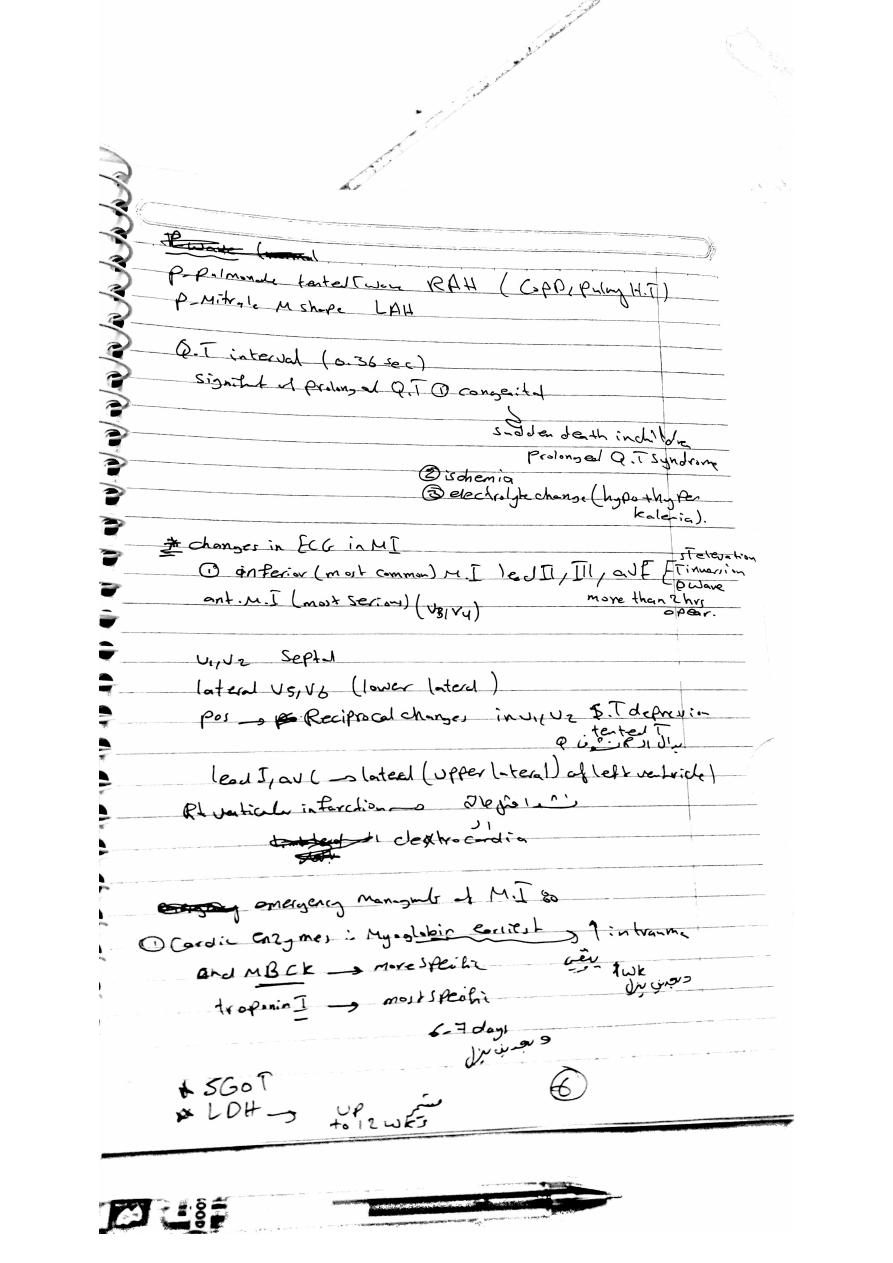 P-Pulmonale tented T wave RAH (CoPD, Pulmonary H.T)
P-Mitrale M shape LAH
Q.T interval (0.36 sec)
Significant of prolonged Q.T ① congenital
sudden death in children
Prolonged Q.T syndrome
② ischemia
③ electrolyte change (hypo + hyper
kalemia).
* changes in ECG in MI
① inferior (most common) M.I lead II, III, aVF
ST elevation
T inversion
Q wave
more than 2 hrs
appear.
ant. M.I (most serious) (V3, V4)
V1, V2 Septal
lateral V5, V6 (lower lateral)
pos → Reciprocal changes in V1, V2 S.T depression
tented T
lead I, aVL → lateral (upper lateral) of left ventricle)
Rt verticular infarction →
dextrocardia
emergency managments of M.I
① Cardic enzymes : Myoglobin earliest → ↑ in trauma
and MBCK → more specific
1wk
troponin I → most specific
6-7 days
* SGOT
* LDH → up
to 12 wks
6